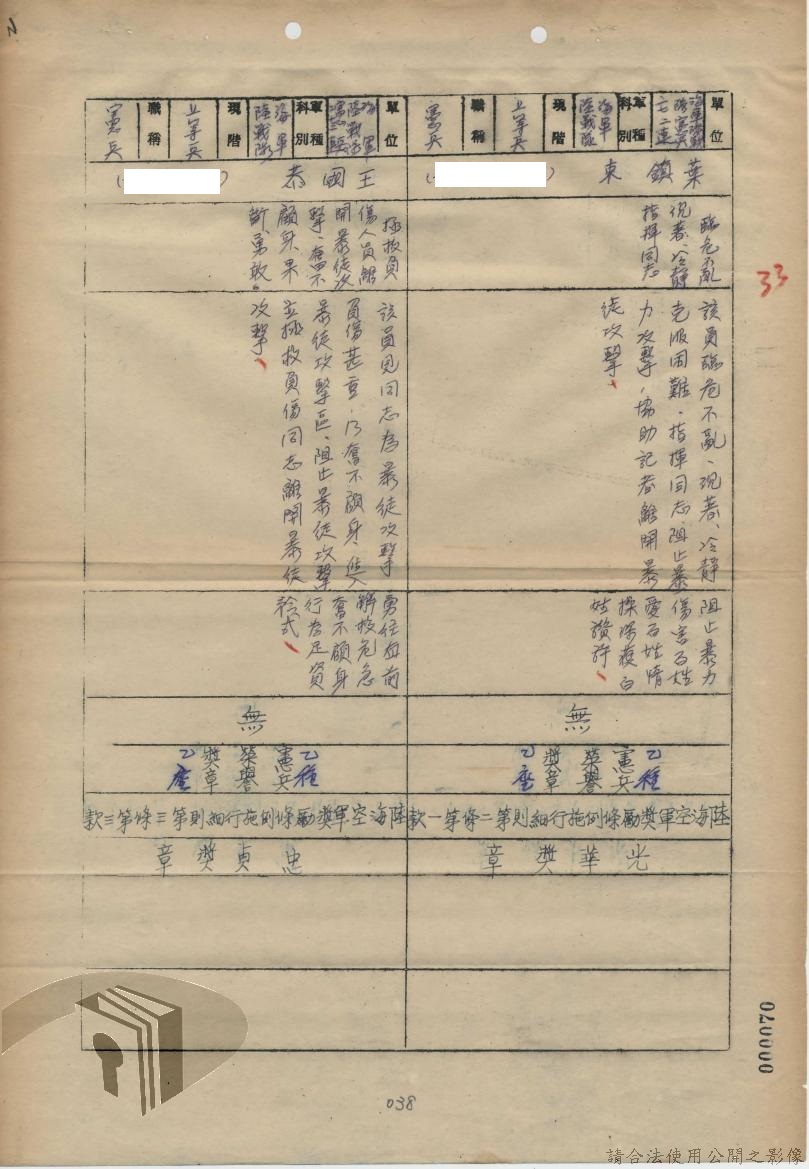 單位
海軍陸戰隊憲兵七二連
軍種科別
海軍陸戰隊
現階
上等兵
職稱
憲兵
葉鎮東
( )
臨危不亂
沉著、冷靜
指揮同志
該員臨危不亂、沉著、冷靜
克服困難、指揮同志、阻止暴
力攻擊,協助記者離開暴
徒攻擊、
阻止暴力
傷害百姓
愛百姓情
操深獲百
姓讚許、
無
乙種
憲兵
榮譽
獎章
乙座
陸海空軍獎勵條例施行細則第二條第一款
光華獎章
單位
海軍陸戰隊
軍種科別
海軍陸戰隊
現階
上等兵
職稱
憲兵
王國恭
( )
拯救負
傷人員離
開暴徒攻
擊、奮不
顧身果
斷勇敢。
該員見同志為暴徒攻擊
負傷甚重,乃奮不顧身,進入
暴徒攻擊區、阻止暴徒攻擊
並拯救負傷同志離開暴徒
攻擊、
勇往直前
解救危急
奮不顧身
行為足資
矜式、
無
乙種
憲兵
榮譽
獎章
乙座
陸海空軍獎勵條例施行細則第三條第三款
忠貞獎章
33
000070
038
請合法使用公開之影像